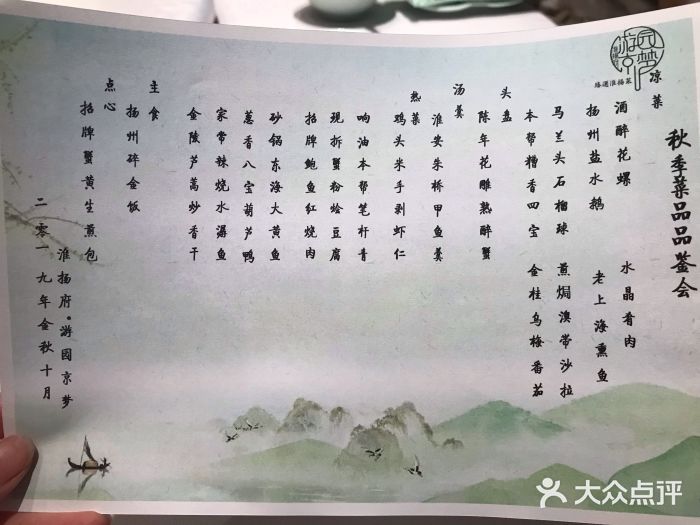 游园京梦
臻选淮扬菜
秋季菜品品鉴会
凉菜
酒醉花螺 水晶肴肉
扬州盐水鹅 老上海熏鱼
马兰头石榴球 煎焗澳带沙拉
本帮糟香四宝 金桂乌梅番茄
头盘
陈年花雕熟醉蟹
汤羹
淮安朱桥甲鱼羹
热菜
鸡头米手剥虾仁
响油本帮笔杆青
现拆蟹粉烩豆腐
招牌鲍鱼红烧肉
砂锅东海大黄鱼
葱香八宝葫芦鸭
家常辣烧水潺鱼
金陵芦蒿炒香干
主食
扬州碎金饭
点心
招牌蟹黄生煎包
淮扬府·游园京梦
二零一九年金秋十月
大众点评